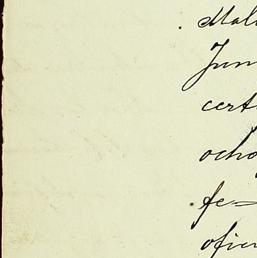 Mal
Jun
cert
ocho
fe=
ofici